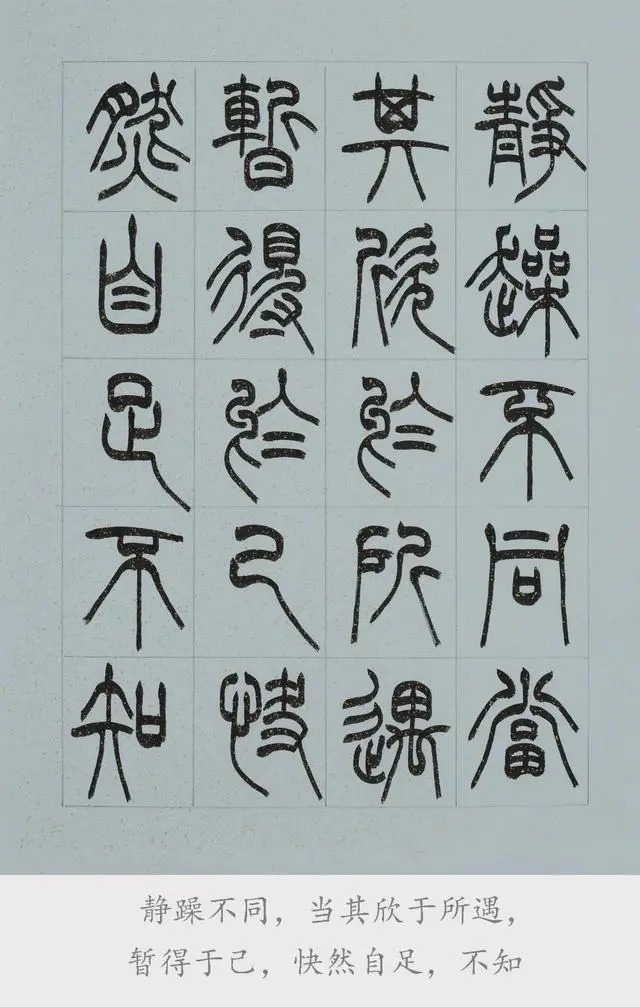 靜躁不同當
其欣於所遇
暫得於己快
然自足不知
静躁不同，当其欣于所遇，
暂得于己，快然自足，不知